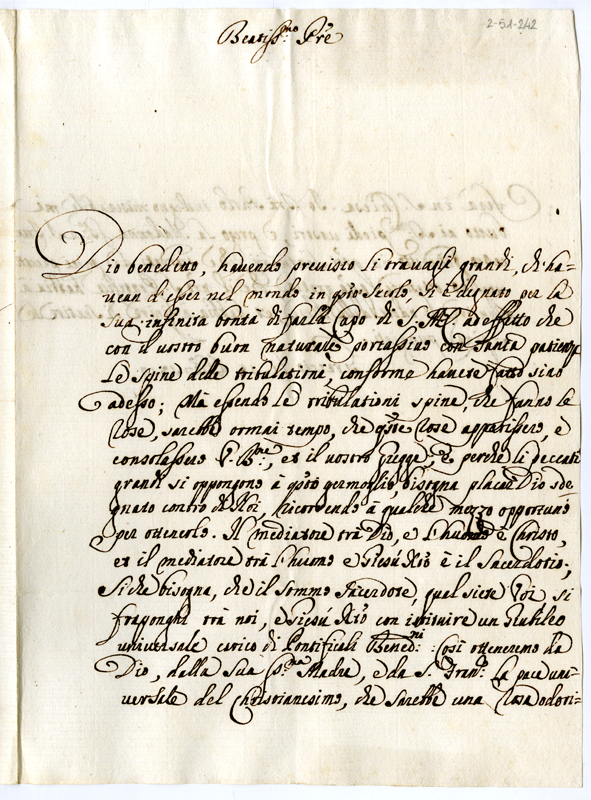 2-51-242
Beatiss.mo Pre
Dio benedetto, havendo previsto li travagli grandi, ch'ha-
vean d'esser nel mondo in q̃sto secolo, si è degnato per la
sua infinita bontà di farla Capo di S. ad effetto che
con il vostro buon naturale portassivo con santa patienza
le spine delle tribulationi, conforme havete fatto sino
adesso; Mà essendo le tribulationi spine, che fanno le
rose, sarebbe ormai tempo, che q̃ste rose apparissero, e
consolassero V. B.ne, et il vostro Gregge, e perche li peccati
grandi si oppongono à q̃sto germoglio, bisogna placar Dio sde-
gnato contro di Noi, ricorrendo à qualche mezzo opportuno
per ottenerlo. Il mediatore trà Dio, e l'huomo è Christo,
et il mediatore trà l'huomo e Giesù Xr̃o è il Sacerdotio;
Siche bisogna, che il sommo Sacerdote, qual siete Voi si
fraponghi trà noi, e Giesù Xr̃o con istituire un Jubileo
universale carico di Pontificali Bened.ni: così otteneremo da
Dio, dalla sua S.ma Madre, e da S. Fran.co la pace uni-
versale del Christianesimo, che sarebbe una rosa odori-